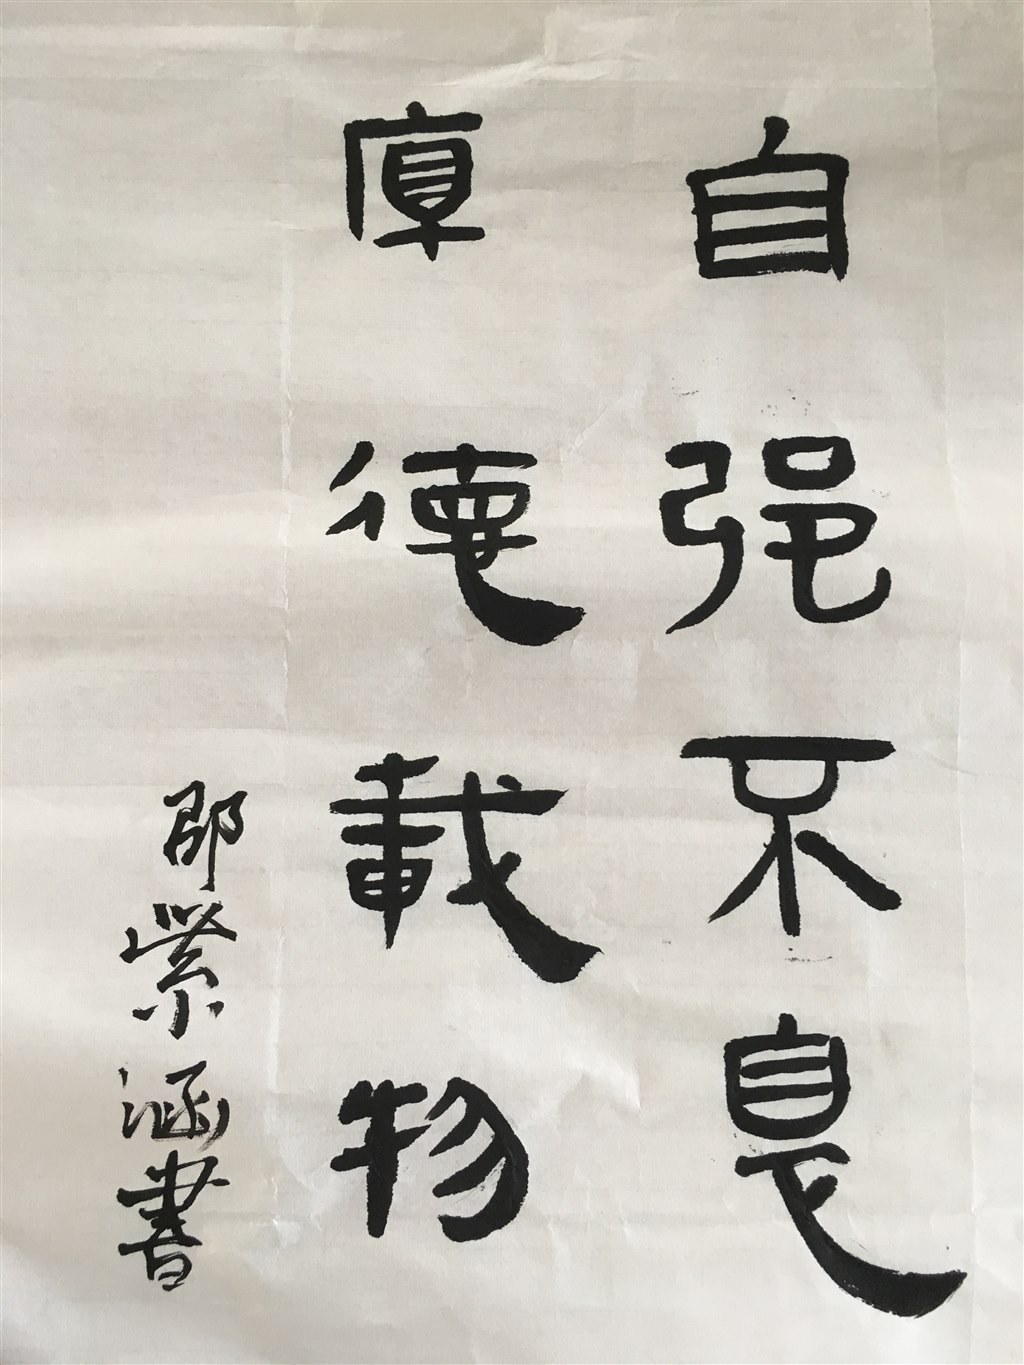 自强不息
厚德載物
邵紫涵書